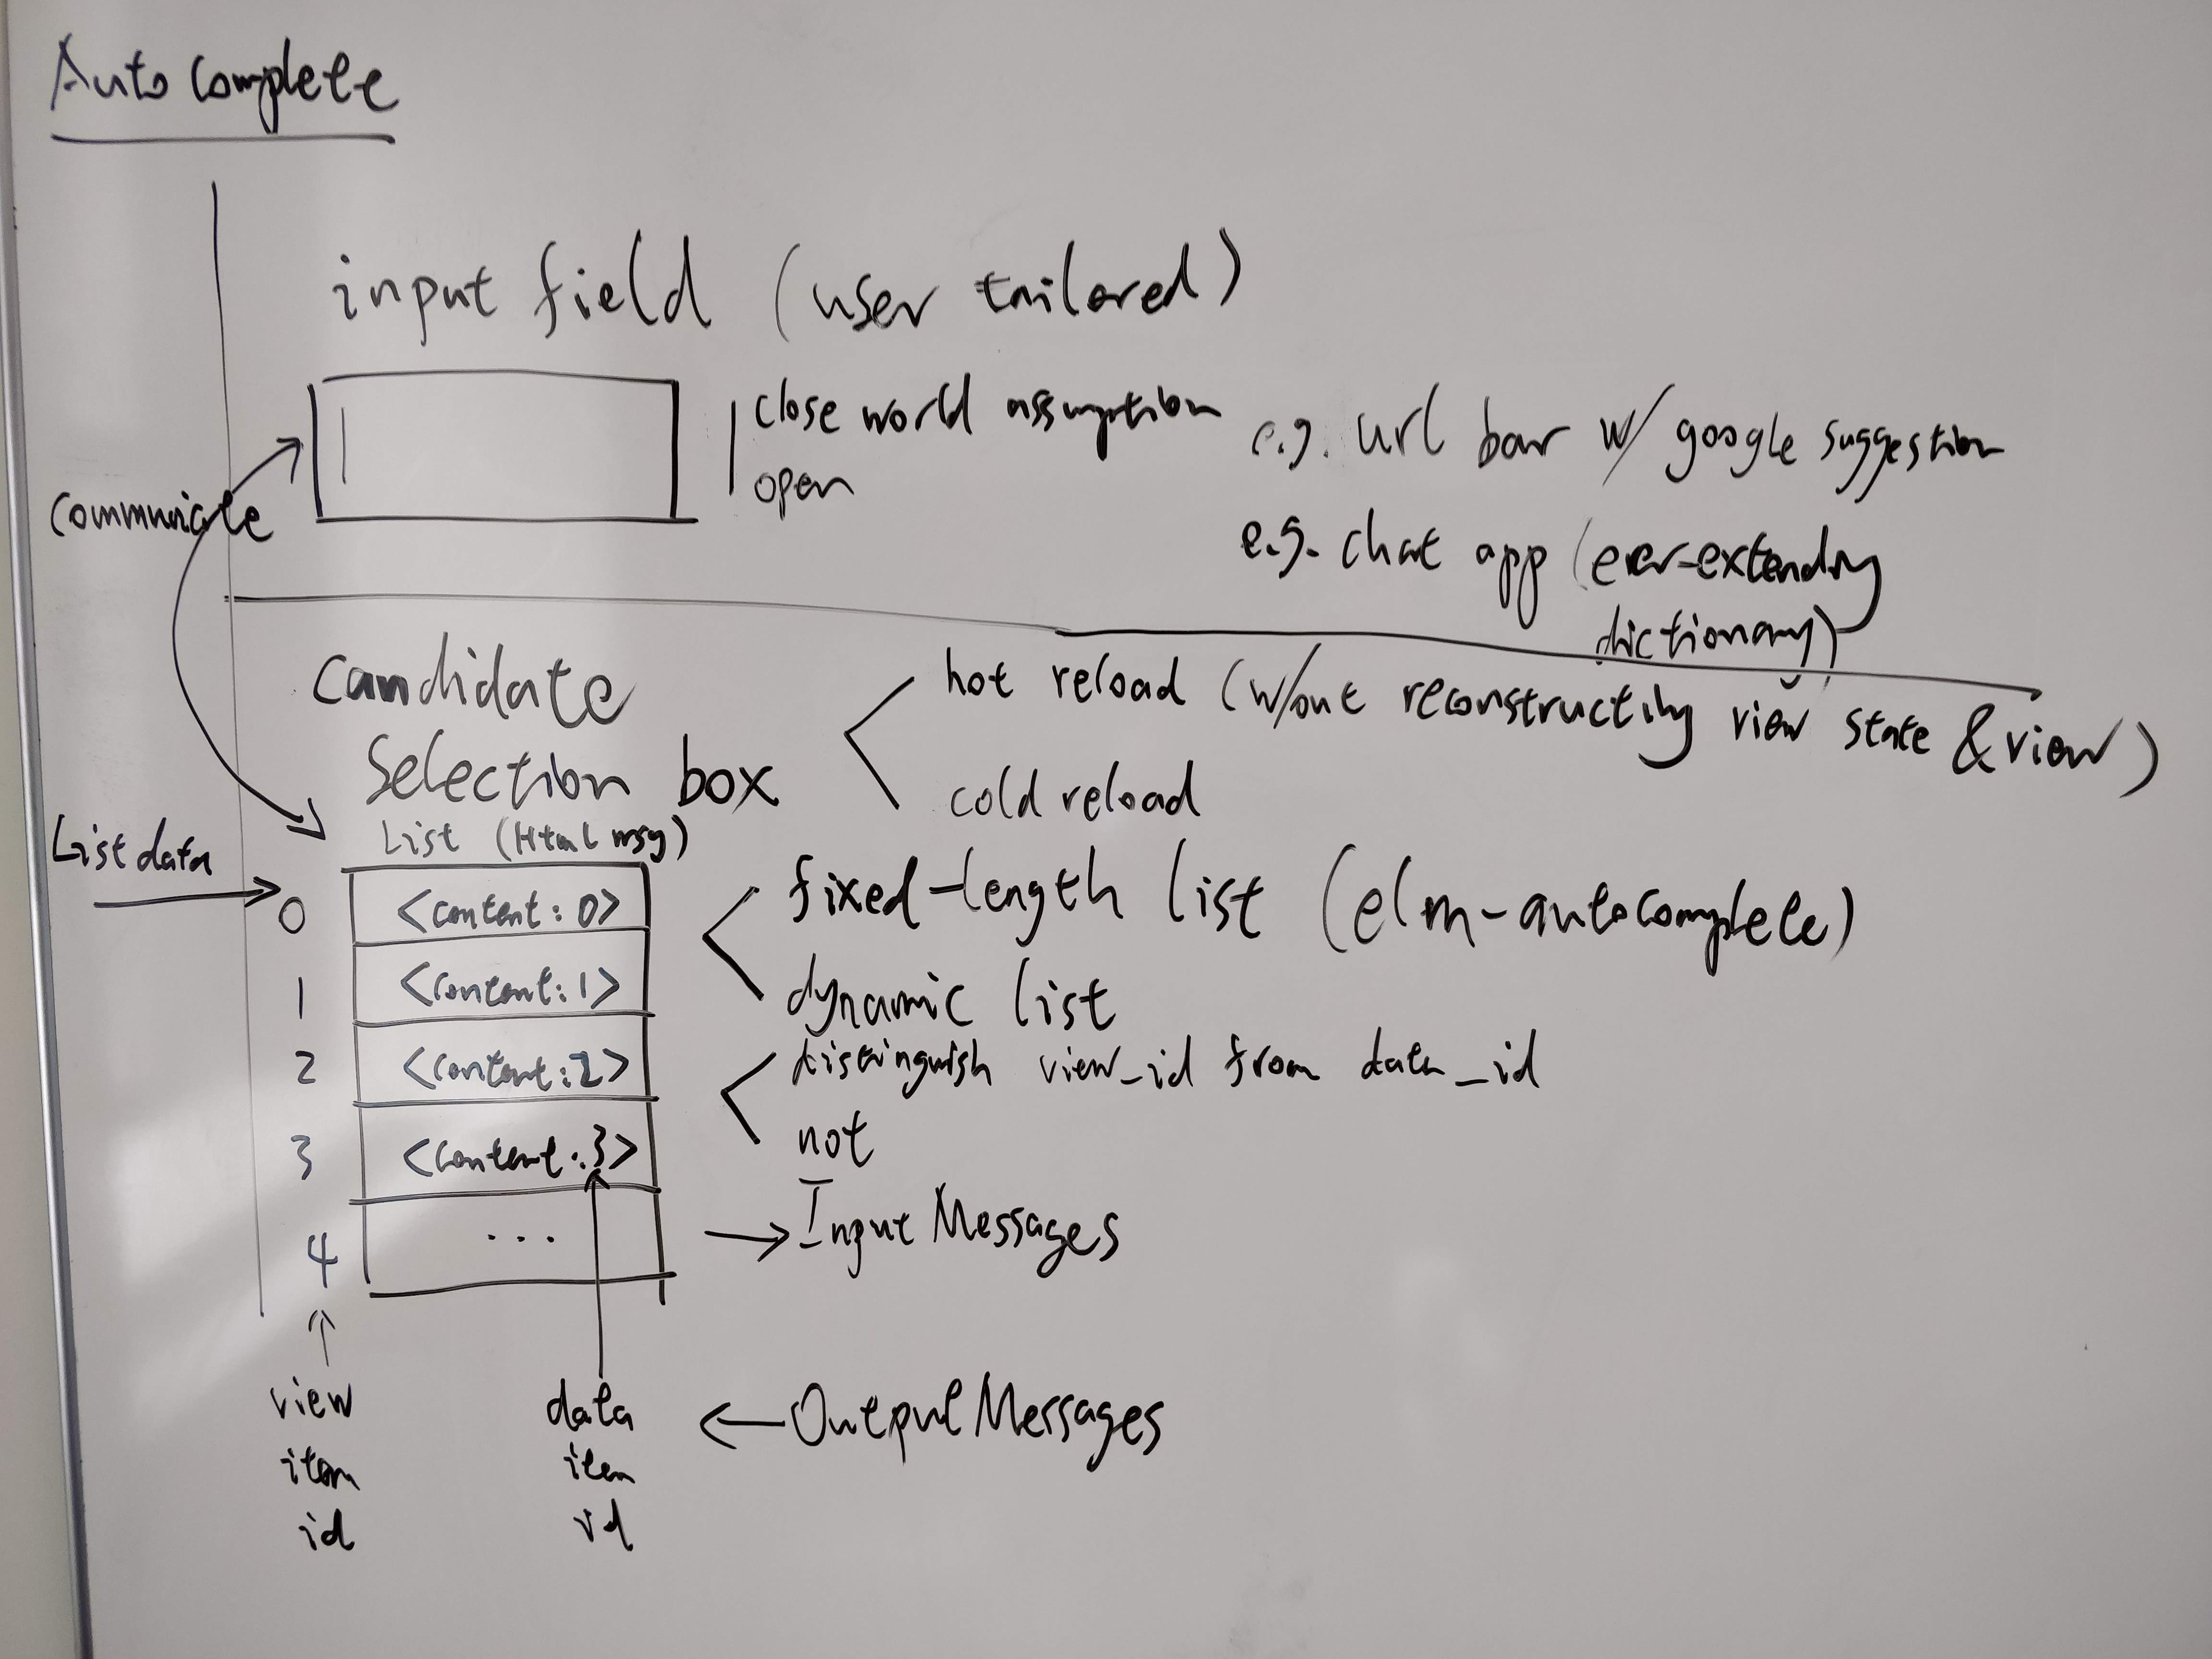 Auto Complete
input field (user tailored)
close world assumption
open
e.g. url bar w/ google suggestion
e.g. chat app (ever-extending
dictionary)
communicate
Candidate
Selection box
hot reload (w/out reconstructing view state & view)
cold reload
List (Html msg)
List data
0 <content: 0>
1 <content: 1>
2 <content: 2>
3 <content: 3>
4 ...
fixed-length list (elm-autocomplete)
dynamic list
distinguish view_id from data_id
not
→ Input Messages
← Output Messages
view
item
id
data
item
id